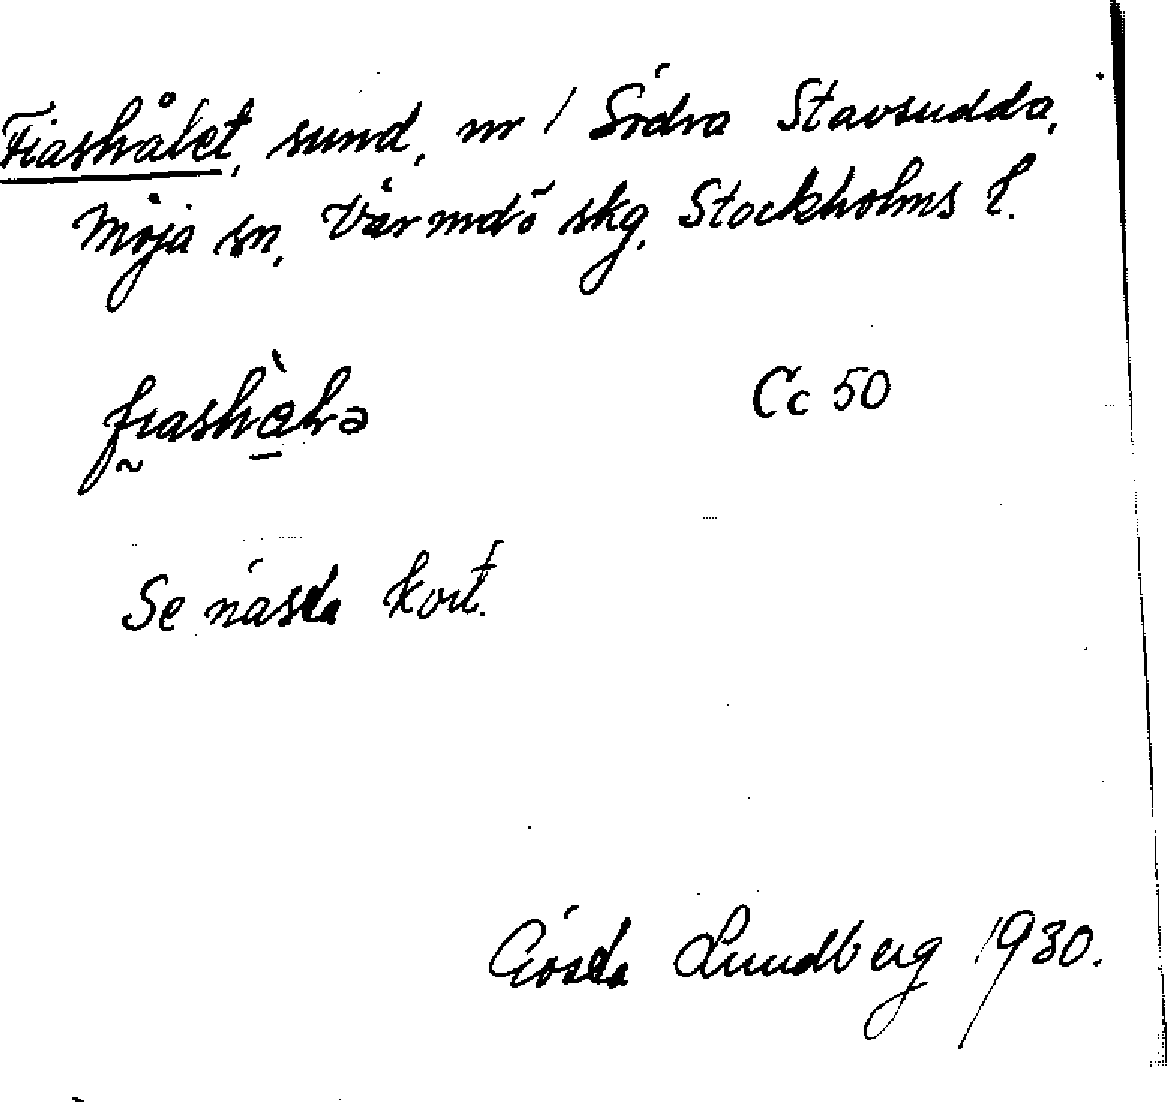 Fiashålet, sund, nr 1 Södra Stavsudda,
Möja sn, Värmdö skg, Stockholms l.
Cc 50
Se nästa kort.
Gösta Lundberg 1930.